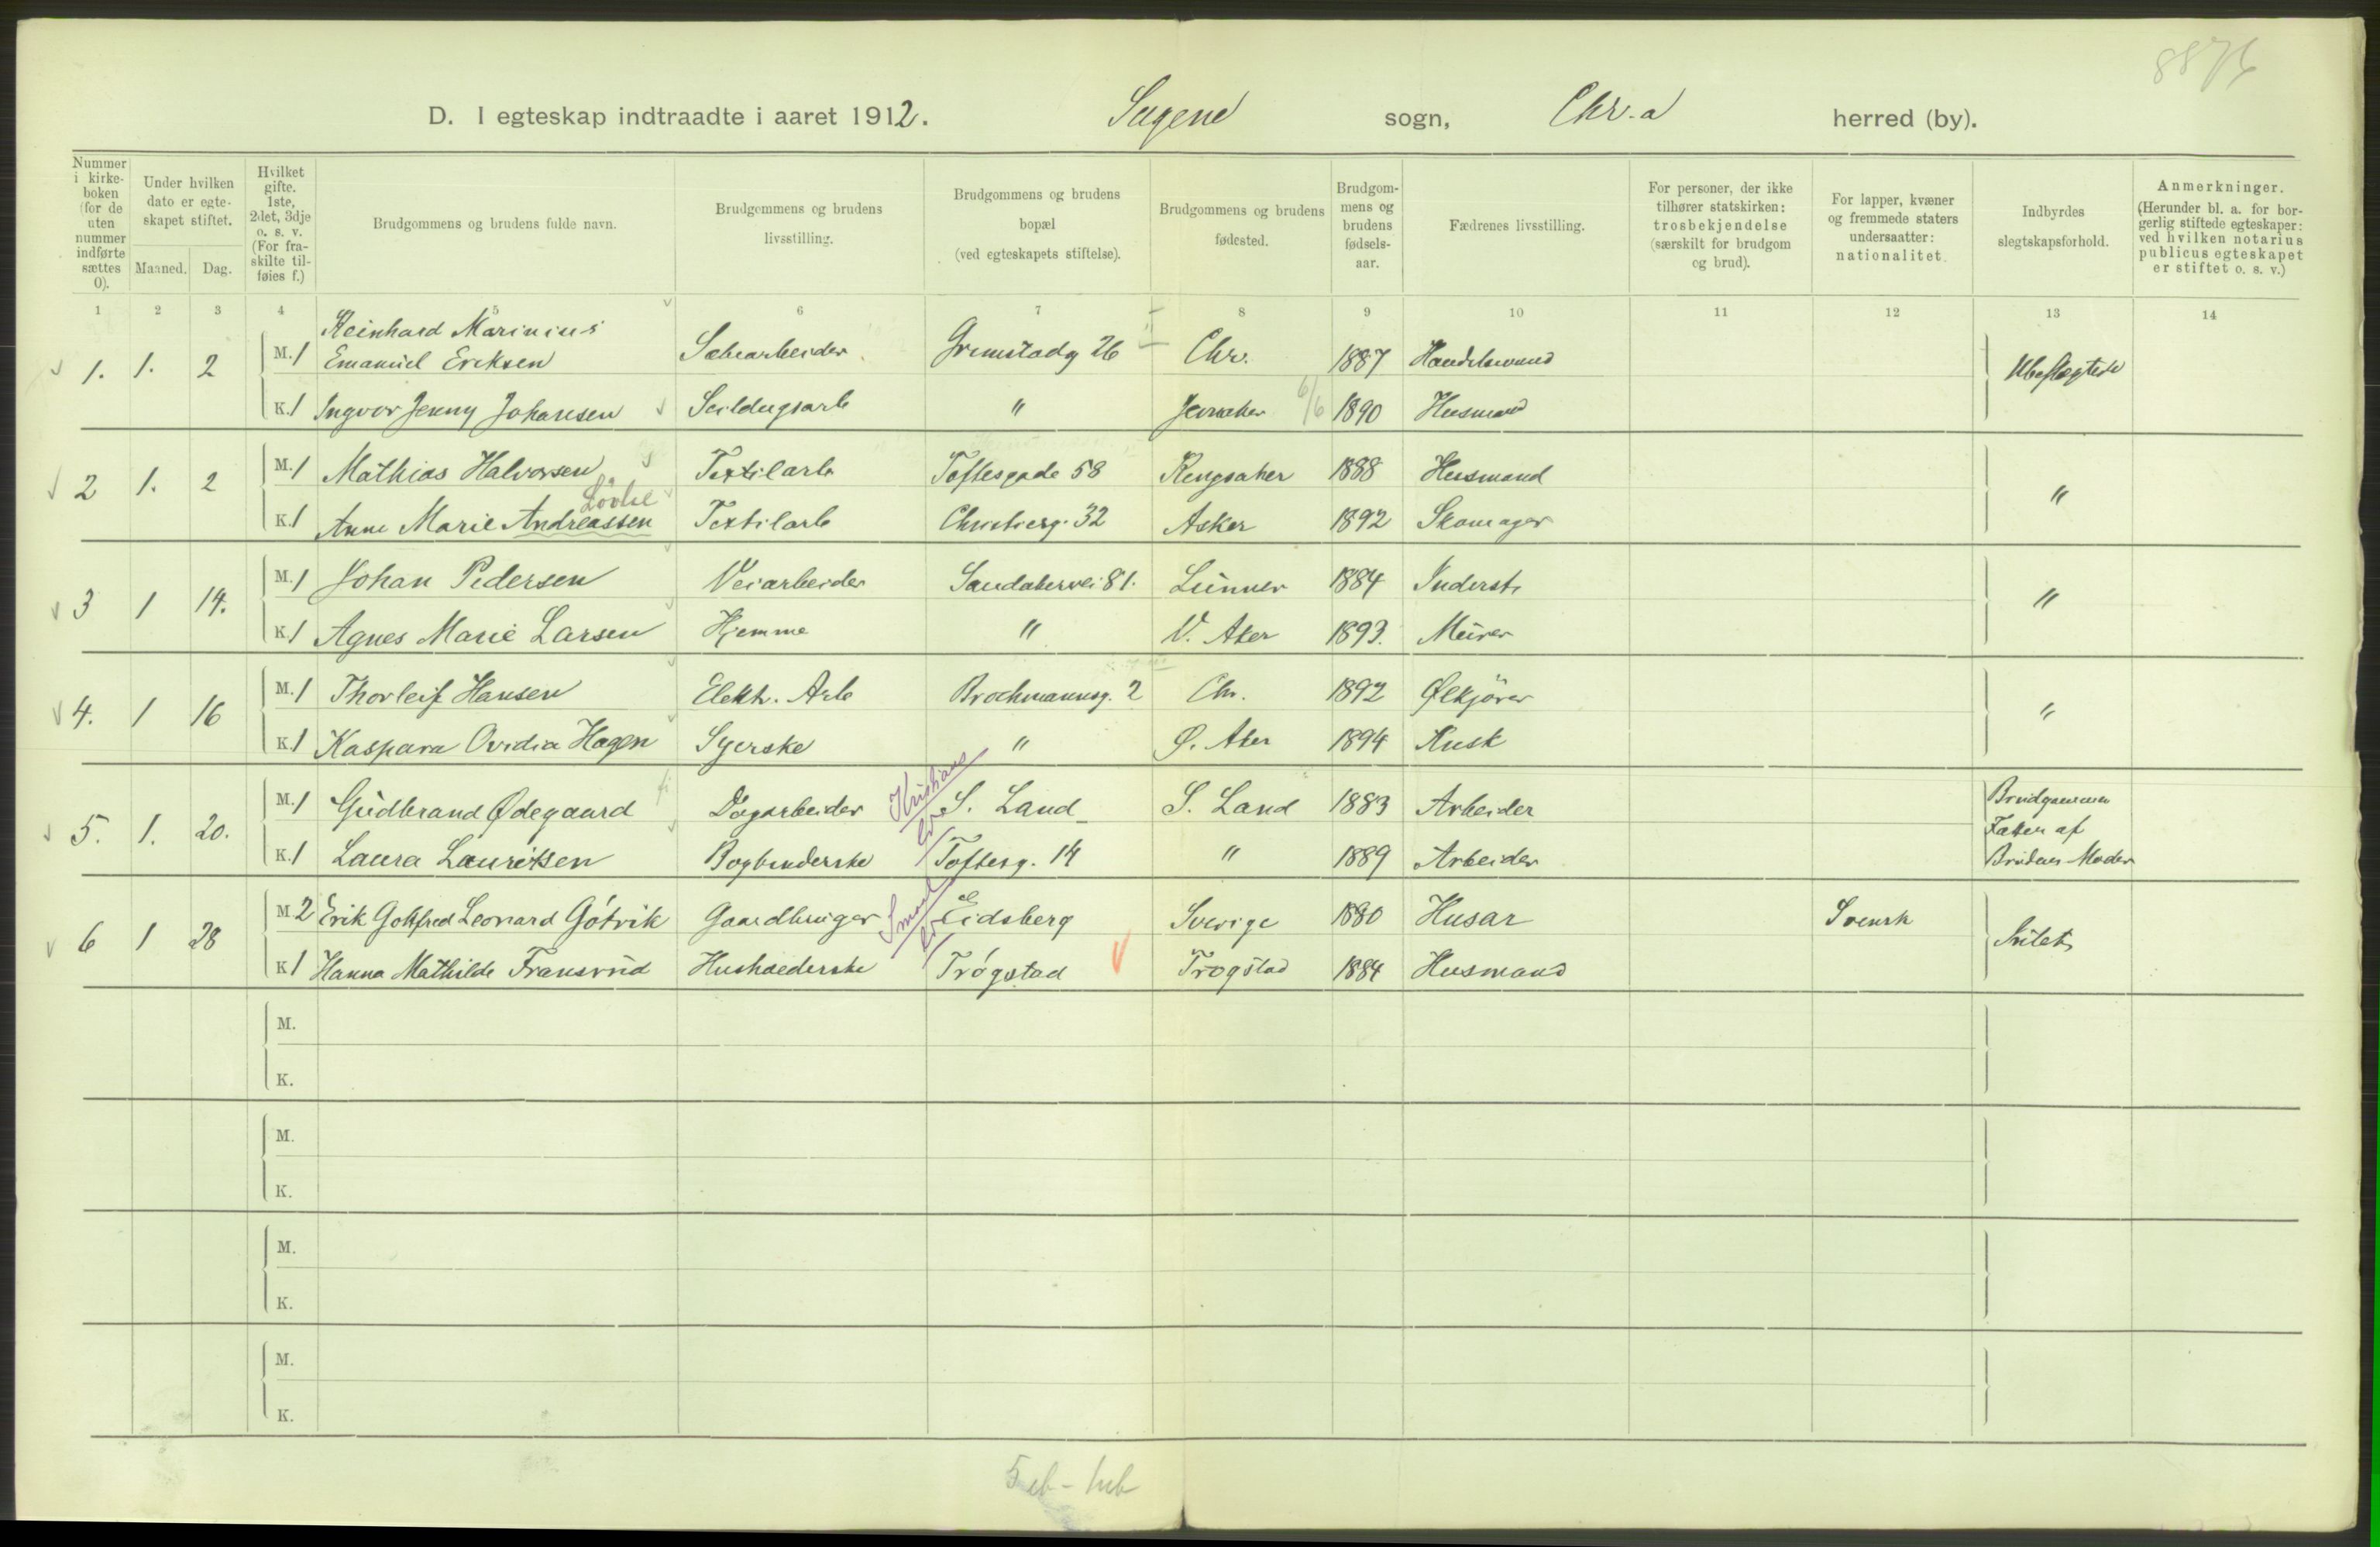 D. I egteskap indtraadte i aaret 1912. Sagene sogn, Chr.a herred (by).
Nummer i kirkeboken (for de uten nummer indførte sættes 0).
Under hvilken dato er egteskapet stiftet.
Maaned. Dag.
Hvilket gifte. 1ste, 2det, 3dje o. s. v. (For fraskilte tilføies f.)
Brudgommens og brudens fulde navn.
Brudgommens og brudens livsstilling.
Brudgommens og brudens bopæl (ved egteskapets stiftelse).
Brudgommens og brudens fødested.
Brudgommens og brudens fødselsaar.
Fædrenes livsstilling.
For personer, der ikke tilhører statskirken: trosbekjendelse (særskilt for brudgom og brud).
For lapper, kvæner og fremmede staters undersaatter: nationalitet.
Indbyrdes slegtskapsforhold.
Anmerkninger. (Herunder bl. a. for borgerlig stiftede egteskaper: ved hvilken notarius publicus egteskapet er stiftet o. s. v.)
1 2 3 4 5 6 7 8 9 10 11 12 13 14
1. 1. 2 M. 1 Reinhard Marinius Emanuel Eriksen Grimstadg 26 Chr. 1887 Handelsmand Ubeslægtede
K. 1 Ingvor Jenny Johansen Seildugsarb " 6/6 1890 Husmand
2 1. 2 M. 1 Mathias Halvorsen Textilarb Toftesgade 58 Ringsaker 1888 Husmand "
K. 1 Anne Marie Andreassen Textilarb 32 Asker 1892 Skomager
3 1 14. M. 1 Johan Pedersen Veiarbeider Sandakervei 81. Lunner 1884 Inderst "
K. 1 Agnes Marie Larsen Hjemme " V. Aker 1893. Murer
4. 1 16 M. 1 Thorleif Hansen Elektr. Arb Brochmannsg. 2 Chr. 1892 Ølkjører "
K. 1 Kaspara Ovidia Hagen Syerske " Ø. Aker 1894 Kusk
5. 1. 20. M. 1 Gudbrand Ødegaard Dagarbeider Kristians S. Land S. Land 1883 Arbeider Brudgommen Fætter af Brudens Moder
K. 1 Laura Lauritsen Bogbinderske Toftesg. 14 " 1889 Arbeider
6 1 28 M. 2 Erik Gottfred Leonard Götvik Gaardbruger Smaal Eidsberg Sverige 1880 Husar Svensk
K. 1 Hanna Mathilde Fransrud Husholderske Trøgstad Trøgstad 1884 Husmand
M.
K.
M.
K.
M.
K.
M.
K.